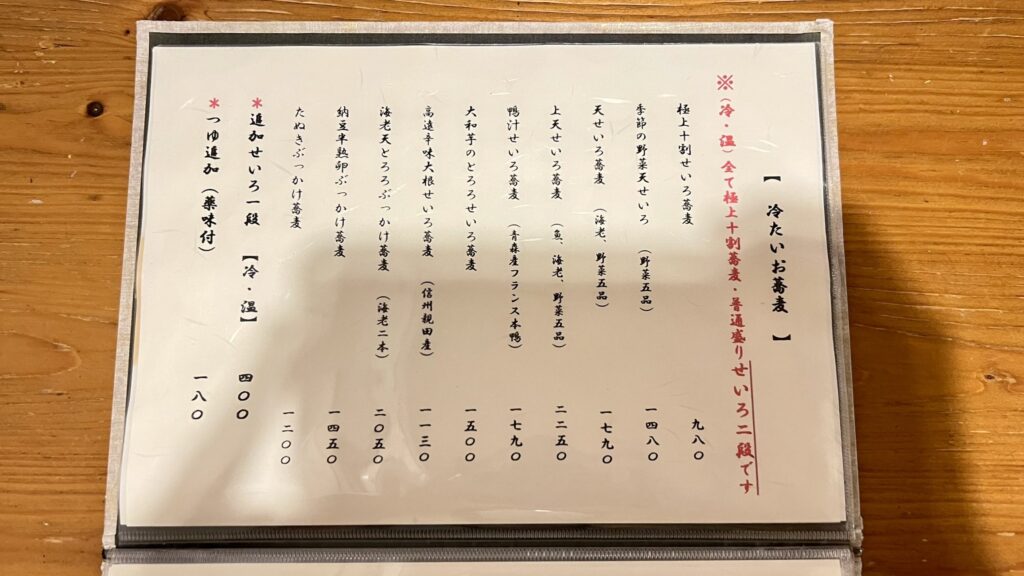 【 冷たいお蕎麦 】
※（冷・温）全て極上十割蕎麦・普通盛りせいろ二段です
極上十割せいろ蕎麦 九八〇
季節の野菜天せいろ （野菜五品） 一四八〇
天せいろ蕎麦 （海老、野菜五品） 一七九〇
上天せいろ蕎麦 （魚、海老、野菜五品） 二二五〇
鴨汁せいろ蕎麦 （青森産フランス本鴨） 一七九〇
大和芋のとろろせいろ蕎麦 一五〇〇
高遠辛味大根せいろ蕎麦 （信州親田産） 一一三〇
海老天とろろぶっかけ蕎麦 （海老二本） 二〇五〇
納豆半熟卵ぶっかけ蕎麦 一四五〇
たぬきぶっかけ蕎麦 一二〇〇
＊追加せいろ一段 【冷・温】 四〇〇
＊つゆ追加（薬味付） 一八〇